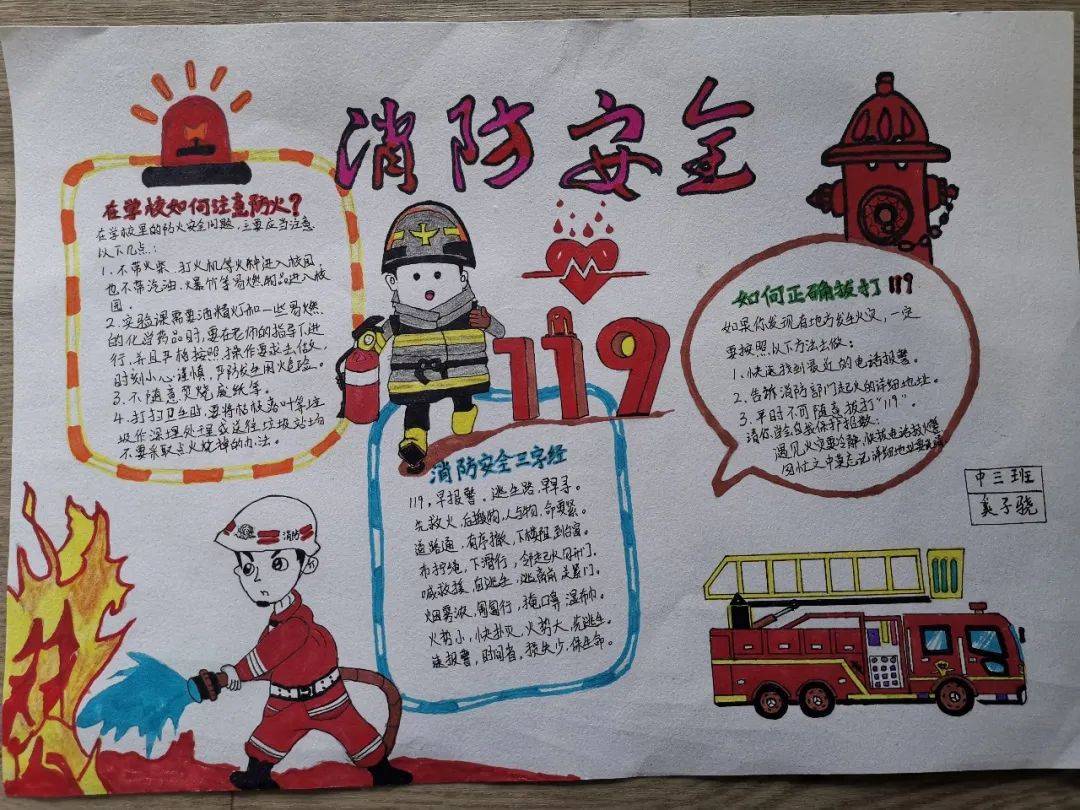 消防安全
在学校如何注意防火?
在学校里的防火安全问题,主要应当注意
以下几点:
1.不带火柴、打火机等火种进入校园,
也不带汽油、爆竹等易燃物品进入校
园。
2.实验课需要酒精灯和一些易燃
的化学药品时,要在老师的指导下进
行,并且严格按照操作要求去做,
时刻小心谨慎,严防发生用火危险。
3.不随意焚烧废纸等。
4.打扫卫生时,要将枯枝落叶等垃
圾作深埋处理或送往垃圾站场
不要采取点火烧掉的办法。
119
如何正确拨打119
如果你发现有地方发生火灾,一定
要按照以下方法去做:
1.快速找到最近的电话报警。
2.告诉消防部门起火的详细地址。
3.平时不可随意拨打“119”。
请你学会自我保护招数:
遇见火灾要冷静,快拨电话救火警
匆忙之中莫忘记 详细地址要
中三班
子骁
消防安全三字经
119,早报警,逃生路,早早寻。
先救火,后搬物,人与物,命要紧。
道路通,有序撤,下楼阻,到窗
布拧绳,下滑行,邻起火,
喊救援,自逃生,逃离前,关
烟雾浓,匍匐行,掩口鼻,湿布巾。
火势小,快扑灭,火势大,先逃生。
速报警,时间省,损失少,保生命。
消防